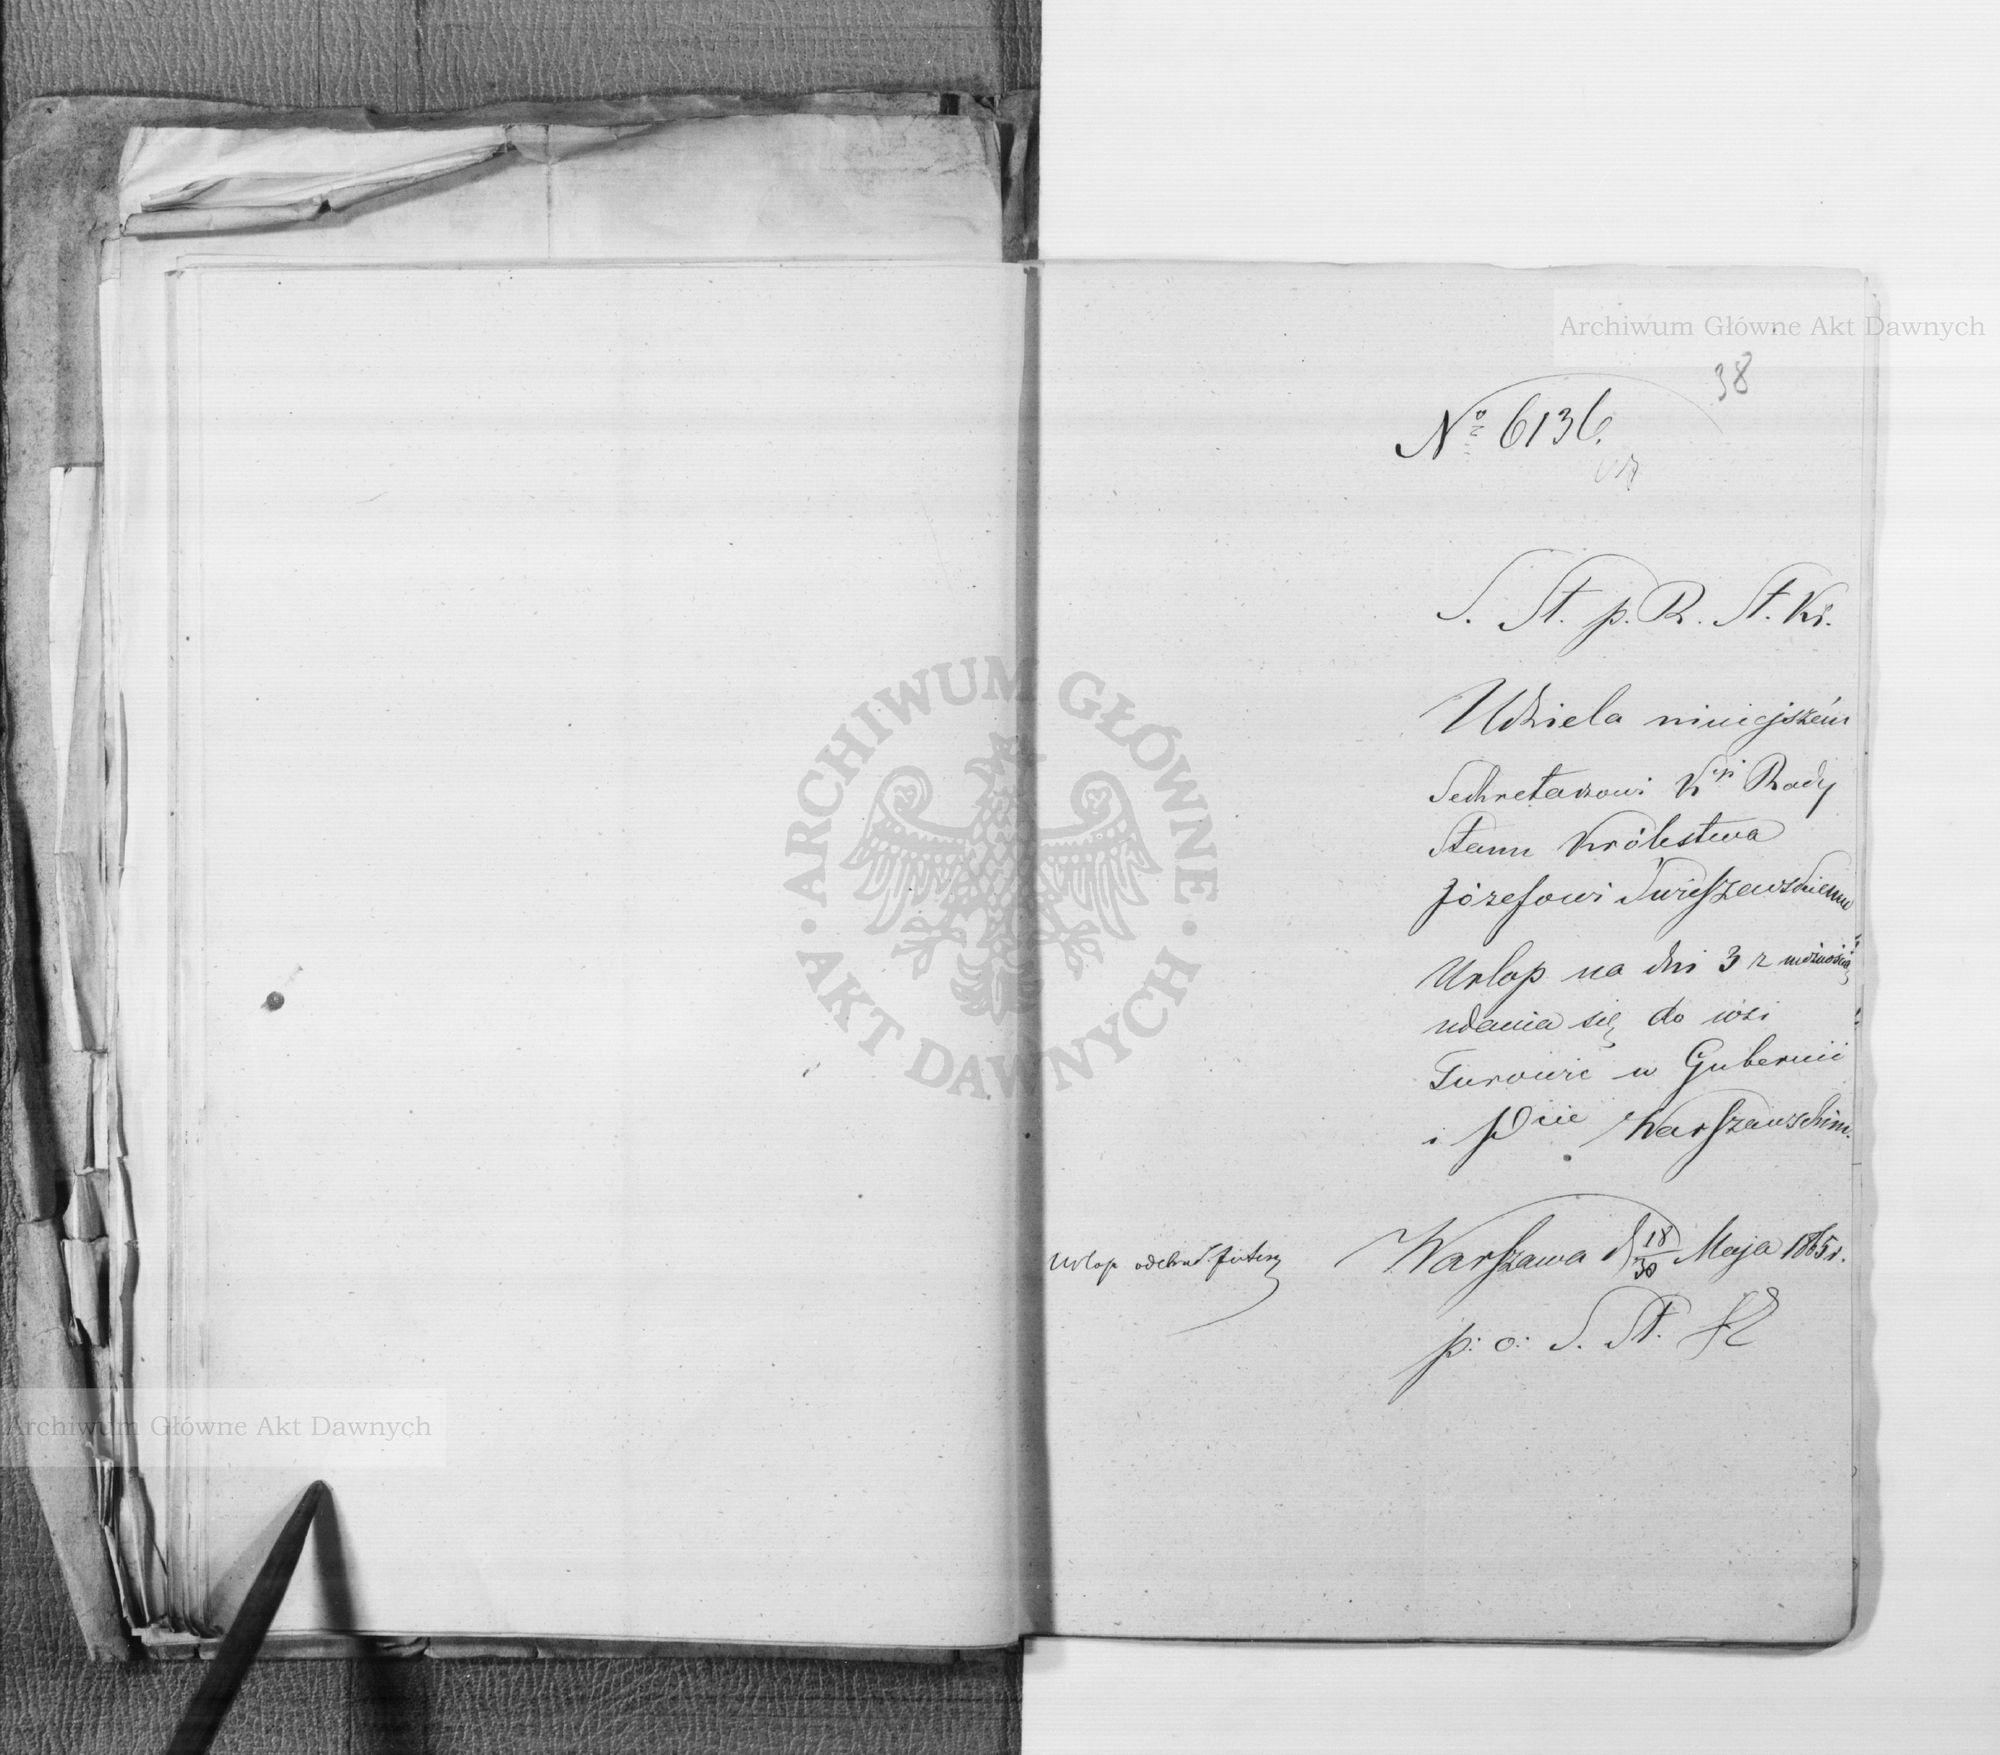 Archiwum Główne Akt Dawnych
38
№ 6136.
S. St. p. R. St. Kr.
Udziela niniejszém
Sekretarzowi K Rady
Stanu Królestwa
Józefowi
Urlop na dni 3 z możnością
udania się do wsi
Turowic w Gubernii
i Pcie Warszawskim.
Warszawa d 18/30 Maja 1865 r.
Urlop odebrał
p: o: S. St.
ARCHIWUM GŁÓWNE
AKT DAWNYCH
Archiwum Główne Akt Dawnych